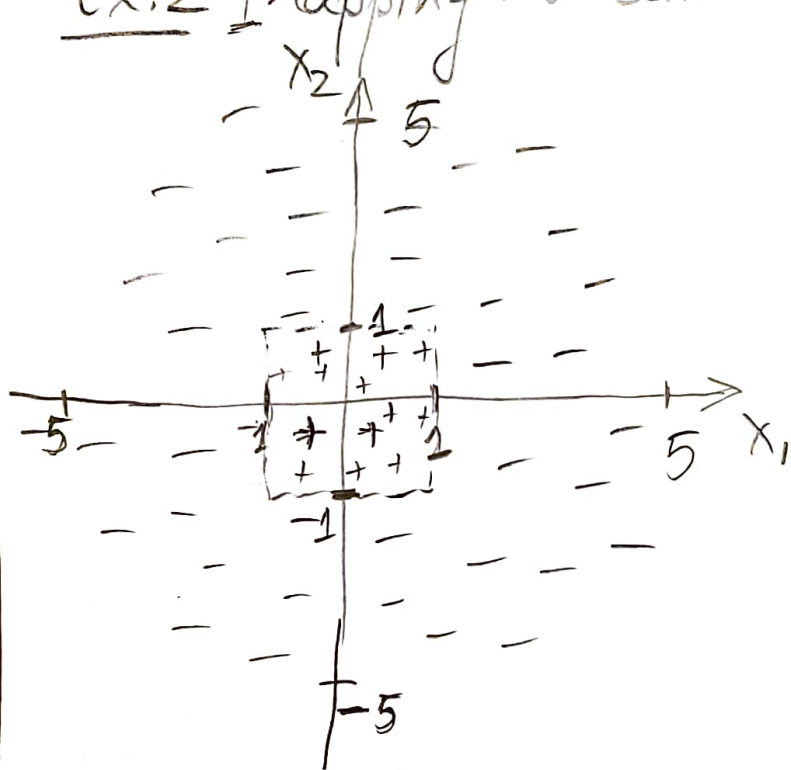 Ex.2
X₂
5
1
-5 -1 1 5 X₁
-1
-5